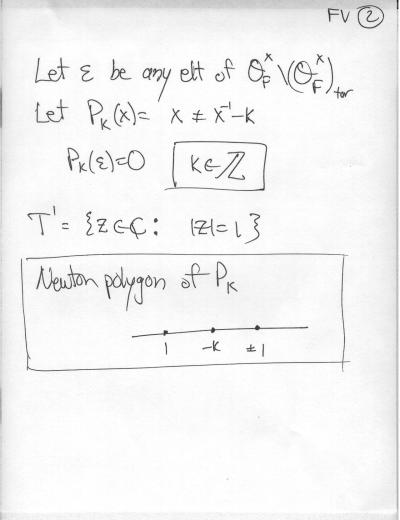 FV ②
Let ε be any elt of O_F^× \ (O_F^×)_tor
Let P_K(x) = x ± x^{-1} - K
P_K(ε)=0 K∈ℤ
T' = {z∈ℂ: |z|=1}
Newton polygon of P_K
1 -K ±1